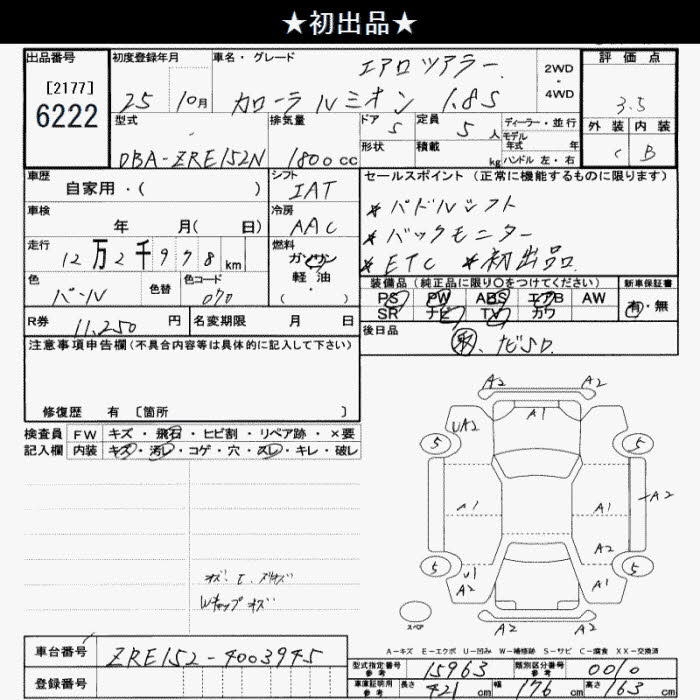 ★初出品★
出品番号 初度登録年月 車名・グレード 評価点
[2177] エアロツアラー 2WD・4WD
6222 25 10月 カローラルミオン 1.8S 3.5
型式 排気量 ドア 5 定員 5人 ディーラー・並行 外装 内装
DBA-ZRE152N 1800cc 形状 積載 kg モデル年式 年 ハンドル 左・右 C B
車歴 シフト セールスポイント (正常に機能するものに限ります)
自家用・( ) IAT
車検 冷房 ＊パドルシフト
年 月( 日) AAC ＊バックモニター
走行 12万2千978km 燃料 ガソリン ＊ETC ＊初出品
軽油・( )
色 色替 色コード 装備品 (純正品に限り○をつけてください) 新車保証書
パール 070 PS PW ABS エアB AW
SR ナビ TV カワ 有・無
R券 11,250円 名変期限 月 日 後日品
注意事項申告欄 (不具合内容等は具体的に記入して下さい) ナビSD
修復歴 有 〔箇所 〕
検査員 FW キズ・飛石・ヒビ割・リペア跡・×要
記入欄 内装 キズ・汚レ・コゲ・穴・スレ・キレ・破レ
A2 A2
A1
UA2
5 5
A1 A1 A2
A2
5 5
U1 A1
A2
A2 A2
Wキャップキズ
スペア
A-キズ E-エクボ U-凹み W-補修跡 S-サビ C-腐食 XX-交換済
車台番号 ZRE152-4003945
型式指定番号 参考 15963 類別区分番号 参考 0010
登録番号
車庫証明用 参考 長さ 421cm 幅 176cm 高さ 163cm